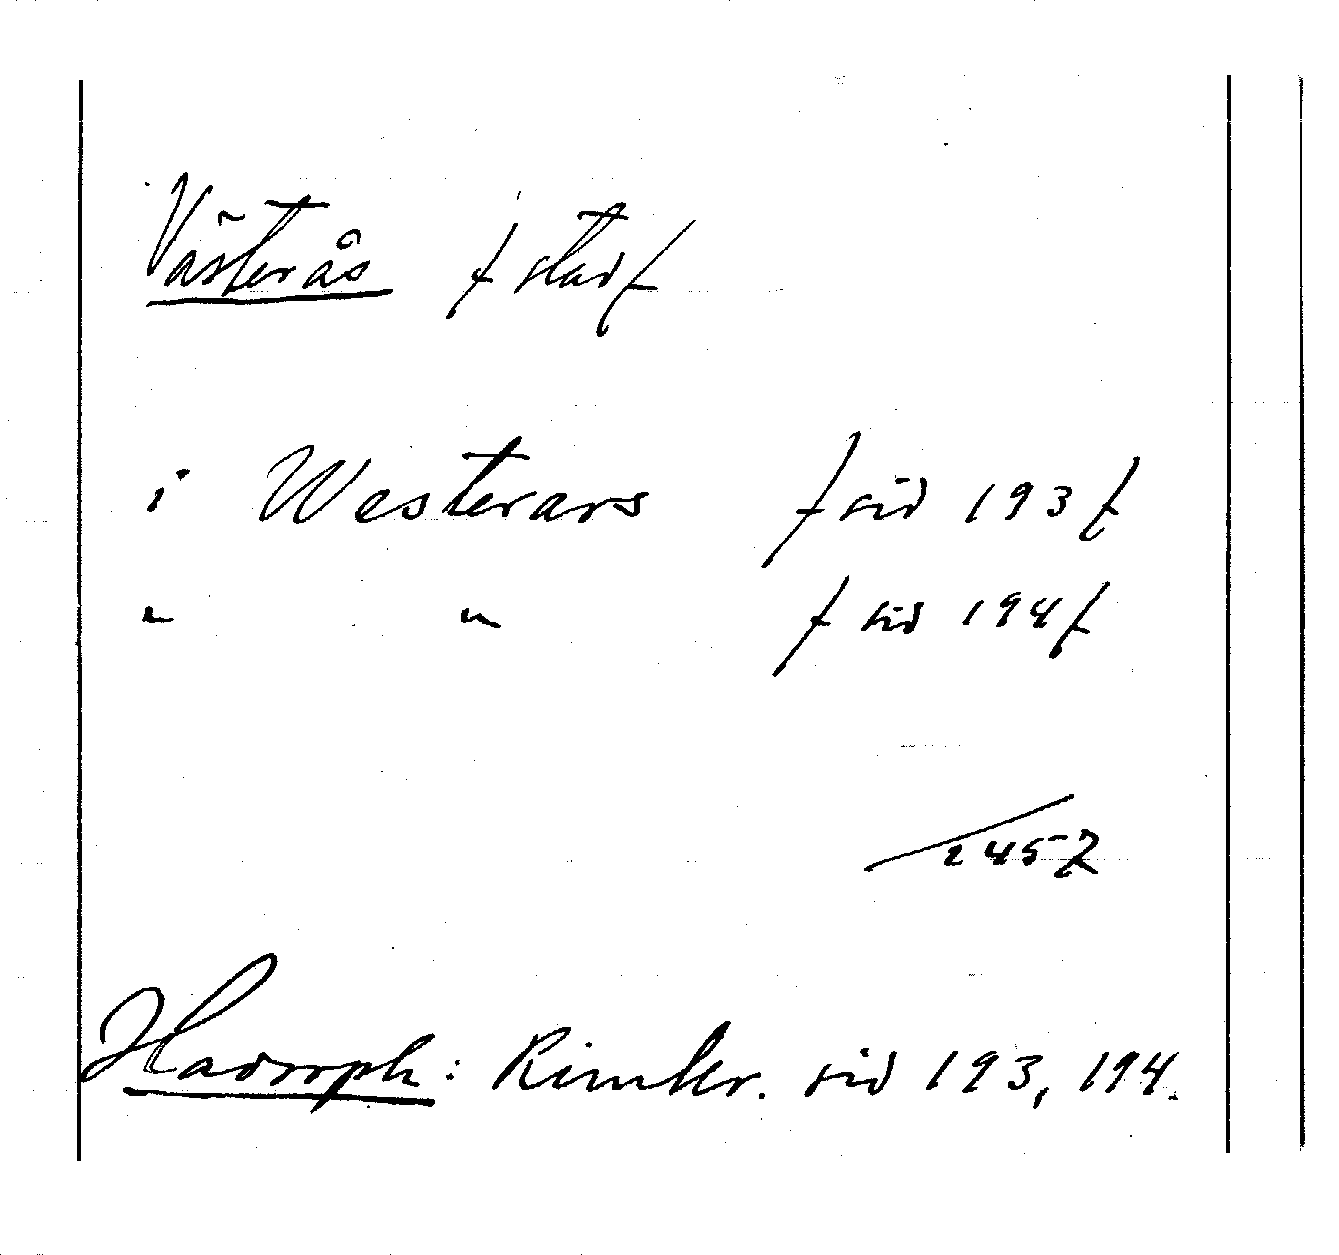 Västerås / stad /
i Westerars / sid 193 /
" " / sid 194 /
1457
Hadorph: Rimkr. sid 193, 194.